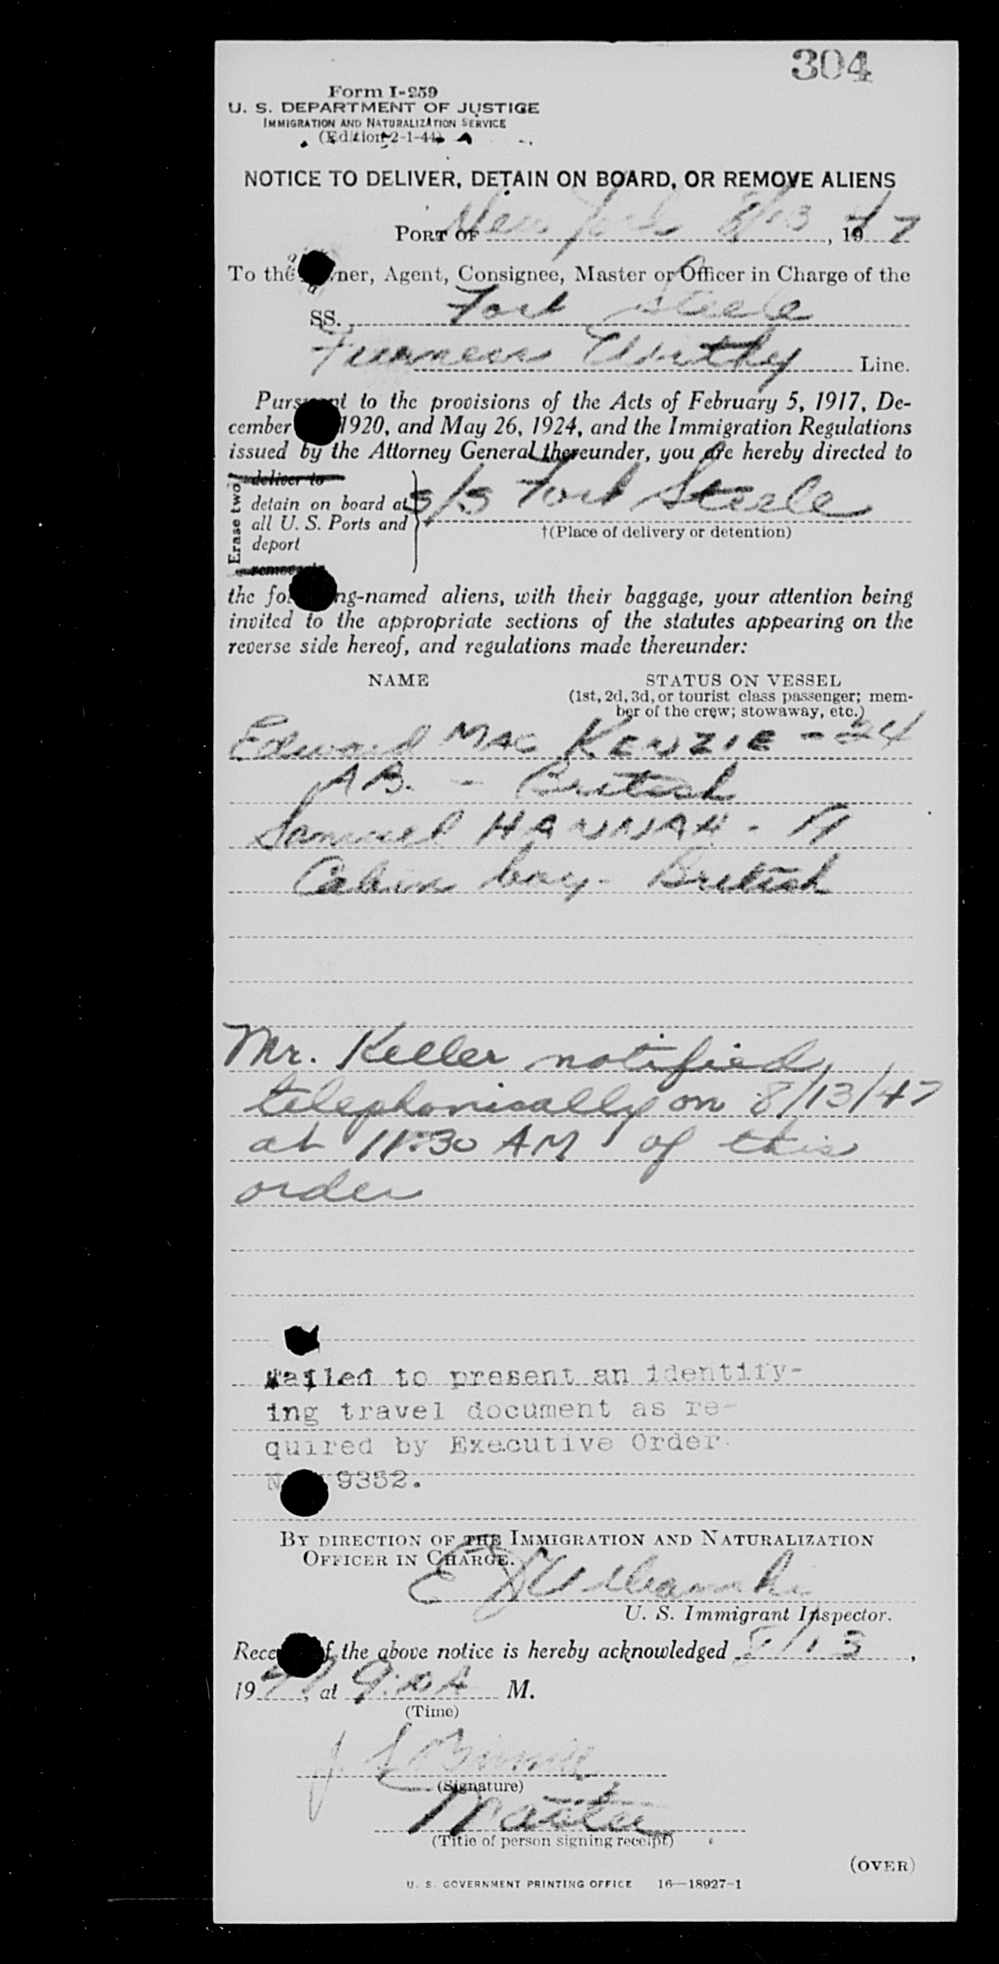 304
Form I-259
U. S. DEPARTMENT OF JUSTICE
IMMIGRATION AND NATURALIZATION SERVICE
(Edition 2-1-44)
NOTICE TO DELIVER, DETAIN ON BOARD, OR REMOVE ALIENS
PORT OF New York 8/13, 1947
To the Owner, Agent, Consignee, Master or Officer in Charge of the
SS. Fort Steele
Furness Withy Line.
Pursuant to the provisions of the Acts of February 5, 1917, De-
cember 1920, and May 26, 1924, and the Immigration Regulations
issued by the Attorney General thereunder, you are hereby directed to
Erase two
deliver to
detain on board at
all U. S. Ports and
deport
remove to
S/S Fort Steele
†(Place of delivery or detention)
the following-named aliens, with their baggage, your attention being
invited to the appropriate sections of the statutes appearing on the
reverse side hereof, and regulations made thereunder:
NAME STATUS ON VESSEL
(1st, 2d, 3d, or tourist class passenger; mem-
ber of the crew; stowaway, etc.)
Edward MAC KENZIE - 24
AB. - British
Samuel HANNAH -
Cabin boy - British
Mr. Keller notified
telephonically on 8/13/47
at 11:30 AM of this
order
Failed to present an identify-
ing travel document as re-
quired by Executive Order
9352.
BY DIRECTION OF THE IMMIGRATION AND NATURALIZATION
OFFICER IN CHARGE.
U. S. Immigrant Inspector.
Receipt of the above notice is hereby acknowledged 8/13,
1947, at M.
(Time)
(Signature)
Master
(Title of person signing receipt)
(OVER)
U. S. GOVERNMENT PRINTING OFFICE 16—18927-1